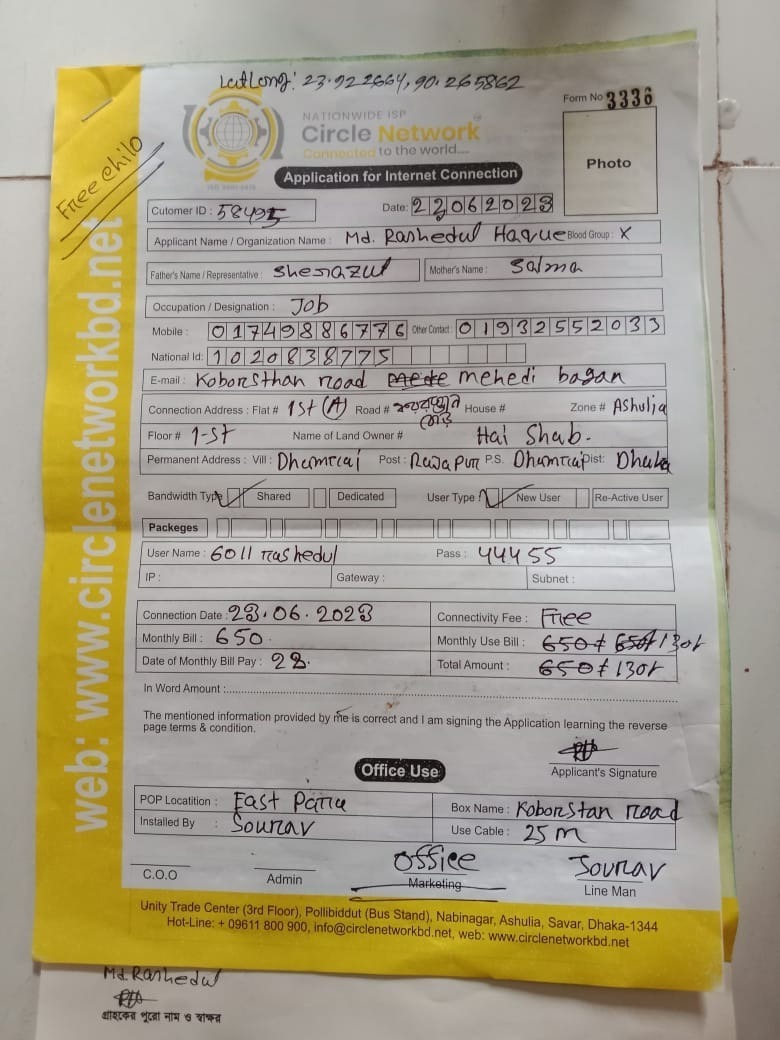 LatLong: 23.922664, 90.265862
Form No 3336
NATIONWIDE ISP
Circle Network
Connected to the world....
ISO 9001:2015
Photo
Application for Internet Connection
Free Chilo
Cutomer ID : 58495 Date: 22062023
Applicant Name / Organization Name : Md. Rashedul Haque Blood Group : X
Father's Name / Representative : Sherazul Mother's Name : Salma
Occupation / Designation : Job
Mobile : 01749886776 Other Contact : 01932552033
National Id: 1020838775
E-mail : Koborsthan road mehedi bagan
Connection Address : Flat # 1st (A) Road # House # Zone # Ashulia
Floor # 1-st Name of Land Owner # Hai Shab.
Permanent Address : Vill : Dhamrai Post : Rajapur P.S. Dhamrai Dist: Dhaka
Bandwidth Type Shared Dedicated User Type New User Re-Active User
Packeges
User Name : 6011 rashedul Pass : 44455
IP : Gateway : Subnet :
Connection Date : 23.06.2023 Connectivity Fee : Free
Monthly Bill : 650. Monthly Use Bill : 650/ 650/ 130/
Date of Monthly Bill Pay : 23. Total Amount : 650/ 130/
In Word Amount :
The mentioned information provided by me is correct and I am signing the Application learning the reverse
page terms & condition.
Applicant's Signature
Office Use
POP Locatition : East Para Box Name : Koborstan road
Installed By : Sourav Use Cable : 25 m
Office Sourav
C.O.O Admin Marketing Line Man
Unity Trade Center (3rd Floor), Pollibiddut (Bus Stand), Nabinagar, Ashulia, Savar, Dhaka-1344
Hot-Line: + 09611 800 900, info@circlenetworkbd.net, web: www.circlenetworkbd.net
web: www.circlenetworkbd.net
Md. Rashedul
গ্রাহকের পুরো নাম ও স্বাক্ষর